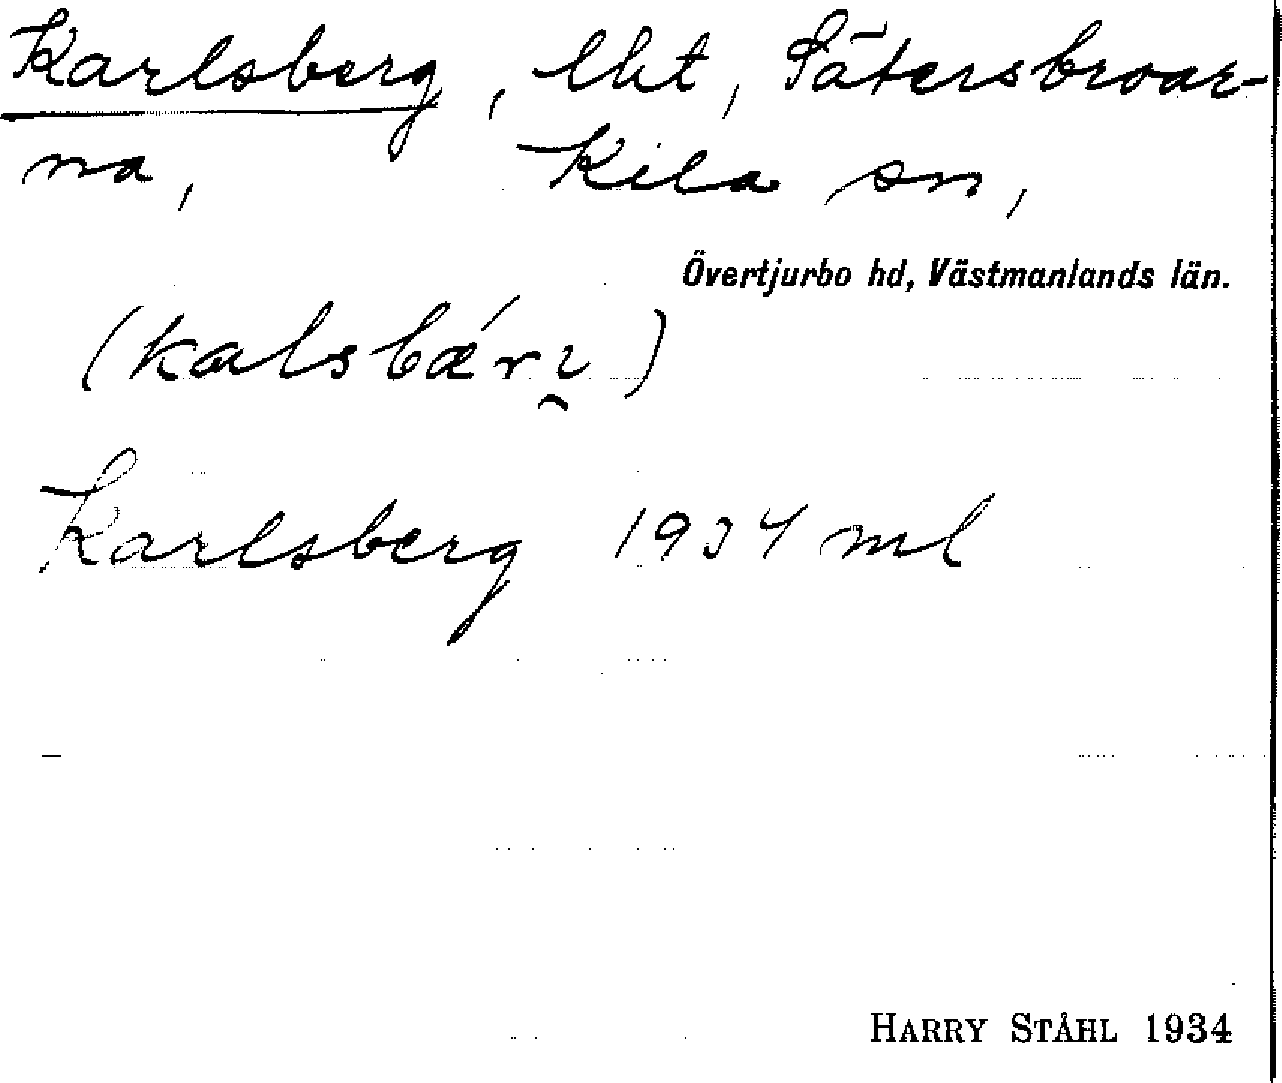 Karlsberg, lht, Sätersbroar-
na, Kila sn,
Övertjurbo hd, Västmanlands län.
(kalsbǽrı̯)
Karlsberg 1934 ml
HARRY STÅHL 1934